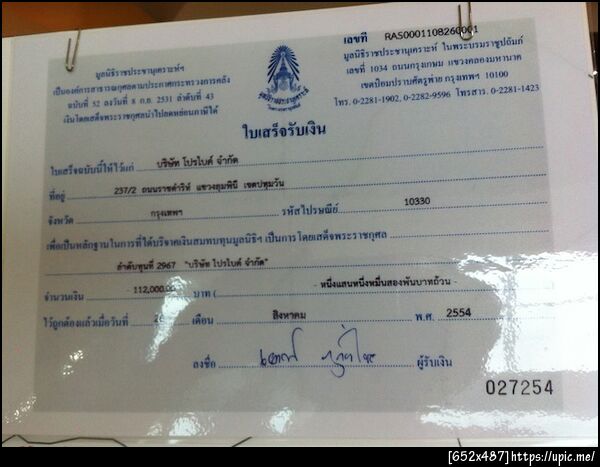 เลขที่ RAS0001108260001
มูลนิธิราชประชานุเคราะห์ ในพระบรมราชูปถัมภ์
เลขที่ 1034 ถนนกรุงเกษม แขวงคลองมหานาค
เขตป้อมปราบศัตรูพ่าย กรุงเทพฯ 10100
โทร. 0-2281-1902, 0-2282-9596 โทรสาร. 0-2281-1423
มูลนิธิราชประชานุเคราะห์ฯ
เป็นองค์การสาธารณกุศลตามประกาศกระทรวงการคลัง
ฉบับที่ 52 ลงวันที่ 8 ก.ย. 2531 ลำดับที่ 43
เงินโดยเสด็จพระราชกุศลนำไปลดหย่อนภาษีได้
ใบเสร็จรับเงิน
ใบเสร็จฉบับนี้ให้ไว้แก่ บริษัท โปรไบด์ จำกัด
ที่อยู่ 237/2 ถนนราชดำริห์ แขวงลุมพินี เขตปทุมวัน
จังหวัด กรุงเทพฯ รหัสไปรษณีย์ 10330
เพื่อเป็นหลักฐานในการที่ได้บริจาคเงินสมทบทุนมูลนิธิฯ เป็นการโดยเสด็จพระราชกุศล
ลำดับทุนที่ 2967 "บริษัท โปรไบด์ จำกัด"
จำนวนเงิน - 112,000.00 บาท ( - หนึ่งแสนหนึ่งหมื่นสองพันบาทถ้วน -
ไว้ถูกต้องแล้วเมื่อวันที่ เดือน สิงหาคม พ.ศ. 2554
ลงชื่อ ผู้รับเงิน
027254
[652x487]https://upic.me/